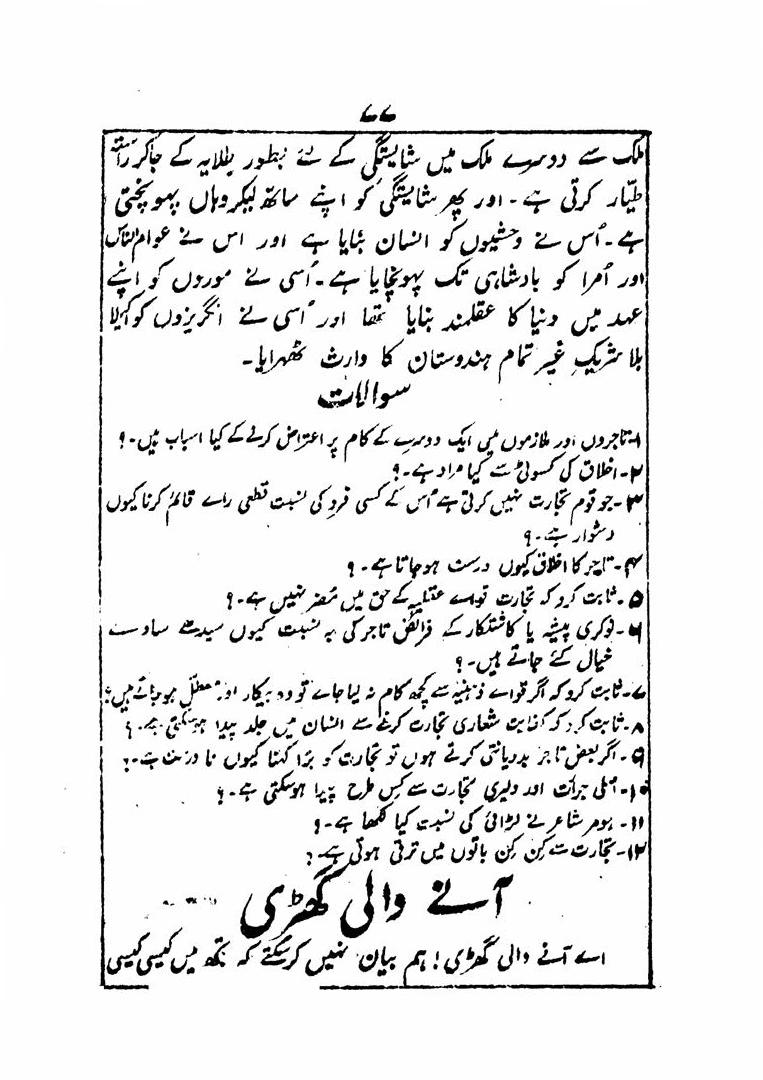 ۷۷
ملک سے دوسرے ملک میں شایستگی کے لئے بطور طلایہ کے جاکر راستہ
طیّار کرتی ہے۔ اور پھر شایستگی کو اپنے ساتھ لیکر وہاں پہونچتی
ہے۔ اُس نے وحشیوں کو انسان بنایا ہے اور اس نے عوام الناس
اور اُمرا کو بادشاہی تک پہونچایا ہے۔ اُسی نے موروں کو اپنے
عہد میں دنیا کا عقلمند بنایا تھا اور اُسی نے انگریزوں کو اکیلا
بلا شریکِ غیر تمام ہندوستان کا وارث ٹھہرایا۔
سوالات
۱۔ تاجروں اور ملازموں میں ایک دوسرے کے کام پر اعتراض کرنے کے کیا اسباب ہیں۔؟
۲۔ اخلاق کی کسوٹی سے کیا مراد ہے۔؟
۳۔ جو قوم تجارت نہیں کرتی ہے اُس کے کسی فرد کی نسبت قطعی رائے قائم کرنا کیوں
دشوار ہے۔؟
۴۔ تاجر کا اخلاق کیوں درست ہو جاتا ہے۔؟
۵۔ ثابت کرو کہ تجارت قواے عقلیہ کے حق میں مُضر نہیں ہے۔؟
۶۔ نوکری پیشہ یا کاشتکار کے فرائض تاجر کی بہ نسبت کیوں سیدھے سادے
خیال کئے جاتے ہیں۔؟
۷۔ ثابت کرو کہ اگر قواے ذہنیہ سے کچھ کام نہ لیا جاے تو وہ بیکار اور معطّل ہو جاتے ہیں؟
۸۔ ثابت کرو کہ کفایت شعاری تجارت کرنے سے انسان میں جلد پیدا ہوسکتی ہے۔؟
۹۔ اگر بعض تاجر بددیانتی کرتے ہوں تو تجارت کو بُرا کہنا کیوں نا درست ہے۔؟
۱۰۔ اصلی جرأت اور دلیری تجارت سے کس طرح پیدا ہوسکتی ہے۔؟
۱۱۔ ہومر شاعر نے لڑائی کی نسبت کیا لکھا ہے۔؟
۱۲۔ تجارت سے کِن کِن باتوں میں ترقی ہوتی ہے؟
آنے والی گھڑی
اے آنے والی گھڑی! ہم بیان نہیں کرسکتے کہ تجھ میں کیسی کیسی